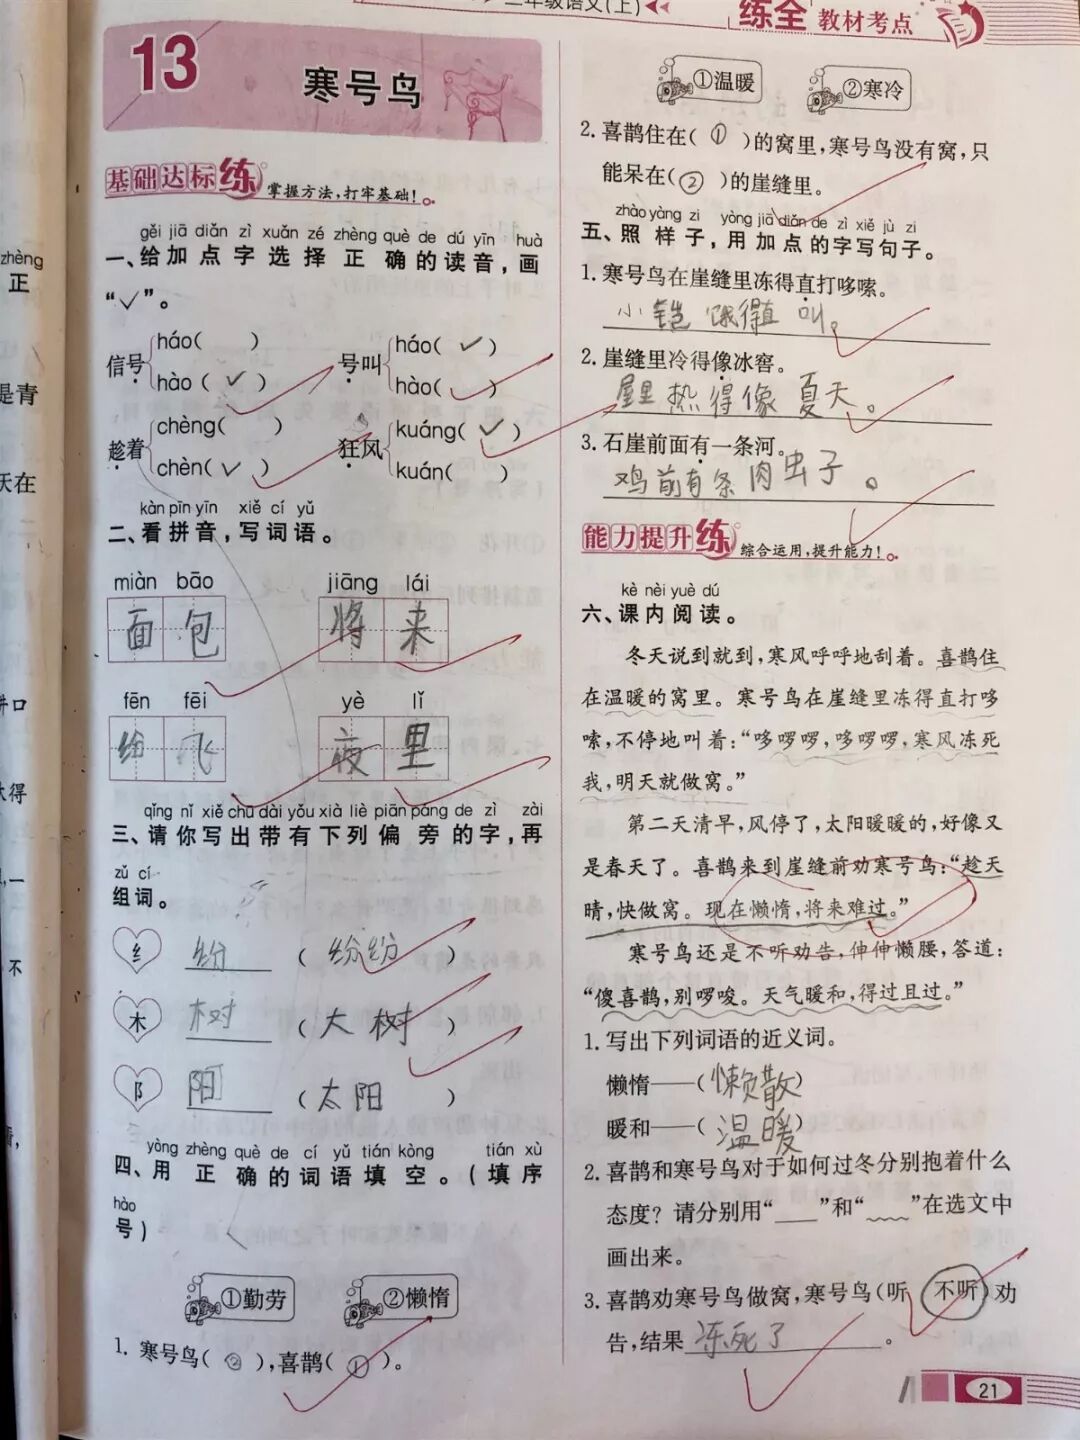 二年级语文(上)
练全 教材考点
13
寒号鸟
基础达标练 掌握方法,打牢基础!
gěi jiā diǎn zì xuǎn zé zhèng què de dú yīn huà
一、给加点字选择正确的读音,画
“✓”。
信号 háo( ) hào(✓)
号叫 háo(✓) hào( )
趁着 chèng( ) chèn(✓)
狂风 kuáng(✓) kuán( )
kàn pīn yīn xiě cí yǔ
二、看拼音,写词语。
miàn bāo jiāng lái
面包 将来
fēn fēi yè lǐ
纷飞 夜里
qǐng nǐ xiě chū dài yǒu xià liè piān páng de zì zài
三、请你写出带有下列偏旁的字,再
zǔ cí
组词。
纟 纷 (纷纷)
木 树 (大树)
阝 阳 (太阳)
yòng zhèng què de cí yǔ tián kòng tián xù
四、用正确的词语填空。(填序
hào
号)
①勤劳 ②懒惰
1. 寒号鸟(②),喜鹊(①)。
①温暖 ②寒冷
2. 喜鹊住在(①)的窝里,寒号鸟没有窝,只
能呆在(②)的崖缝里。
zhào yàng zi yòng jiā diǎn de zì xiě jù zi
五、照样子,用加点的字写句子。
1. 寒号鸟在崖缝里冻得直打哆嗦。
小 饿得直叫。
2. 崖缝里冷得像冰窖。
屋里热得像夏天。
3. 石崖前面有一条河。
鸡前有条肉虫子。
能力提升练 综合运用,提升能力!
kè nèi yuè dú
六、课内阅读。
冬天说到就到,寒风呼呼地刮着。喜鹊住
在温暖的窝里。寒号鸟在崖缝里冻得直打哆
嗦,不停地叫着:“哆啰啰,哆啰啰,寒风冻死
我,明天就做窝。”
第二天清早,风停了,太阳暖暖的,好像又
是春天了。喜鹊来到崖缝前劝寒号鸟:“趁天
晴,快做窝。现在懒惰,将来难过。”
寒号鸟还是不听劝告,伸伸懒腰,答道:
“傻喜鹊,别啰唆。天气暖和,得过且过。”
1. 写出下列词语的近义词。
懒惰——(懒散)
暖和——(温暖)
2. 喜鹊和寒号鸟对于如何过冬分别抱着什么
态度?请分别用“___”和“﹏﹏”在选文中
画出来。
3. 喜鹊劝寒号鸟做窝,寒号鸟(听 不听)劝
告,结果 冻死了 。
21
zhèng
正
是青
天在